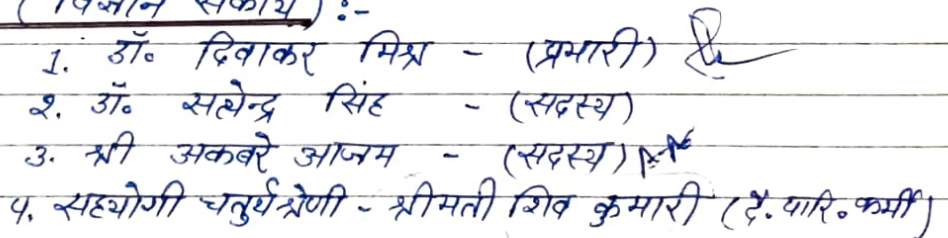 (विज्ञान संकाय) :-
1. डॉ. दिवाकर मिश्र - (प्रभारी)
२. डॉ. सत्येन्द्र सिंह - (सदस्य)
3. श्री अकबरे आजम - (सदस्य)
४. सहयोगी चतुर्थ श्रेणी - श्रीमती शिव कुमारी (दै. पारि. कर्मी)